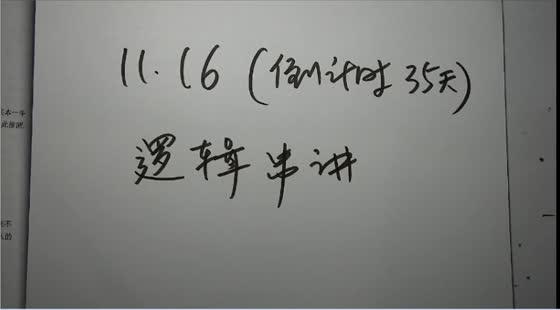 11.16 (倒计时35天)
逻辑串讲